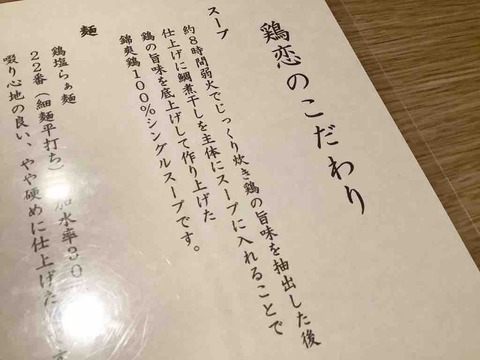 鶏恋のこだわり
スープ
約８時間弱火でじっくり炊き鶏の旨味を抽出した後
仕上げに鯛煮干しを主体にスープに入れることで
鶏の旨味を底上げして作り上げた
錦爽鶏１００％シングルスープです。
麺
鶏塩らぁ麺
２２番（細麺平打ち） 加水率３０
啜り心地の良い、やや硬めに仕上げた